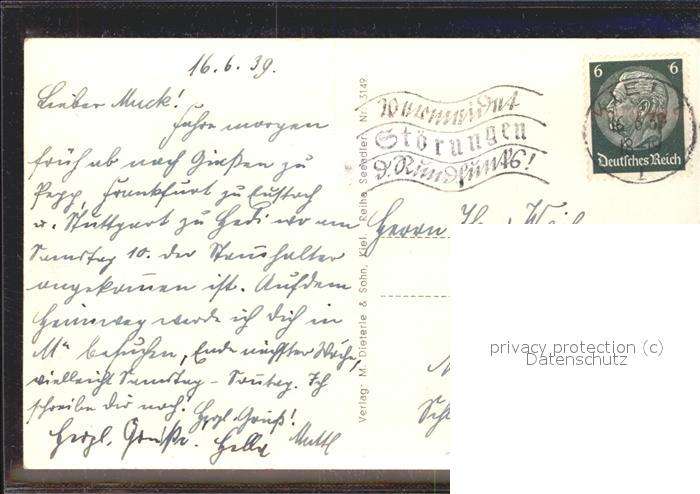 16.6.39.
Lieber Muck!
Fahre morgen
früh ab nach Gießen zu
Pepp, Frankfurt zu Eustach
u. Stuttgart zu Hedi wo am
Samstag 10. der Stammhalter
angekommen ist. Auf dem
Heimweg werde ich Dich in
M. besuchen, Ende nächster Woche,
vielleicht Samstag - Sonntag. Ich
schreibe Dir noch. Herzl. Gruß!
Herzl. Grüße. Hella Muttl
Verlag: M. Dieterle & Sohn, Kiel, Reihe Seeadler, Nr. 3149
Vermeidet
Störungen
d. Rundfunks!
6 6
Deutsches Reich
KIEL
Herrn
privacy protection (c)
Datenschutz